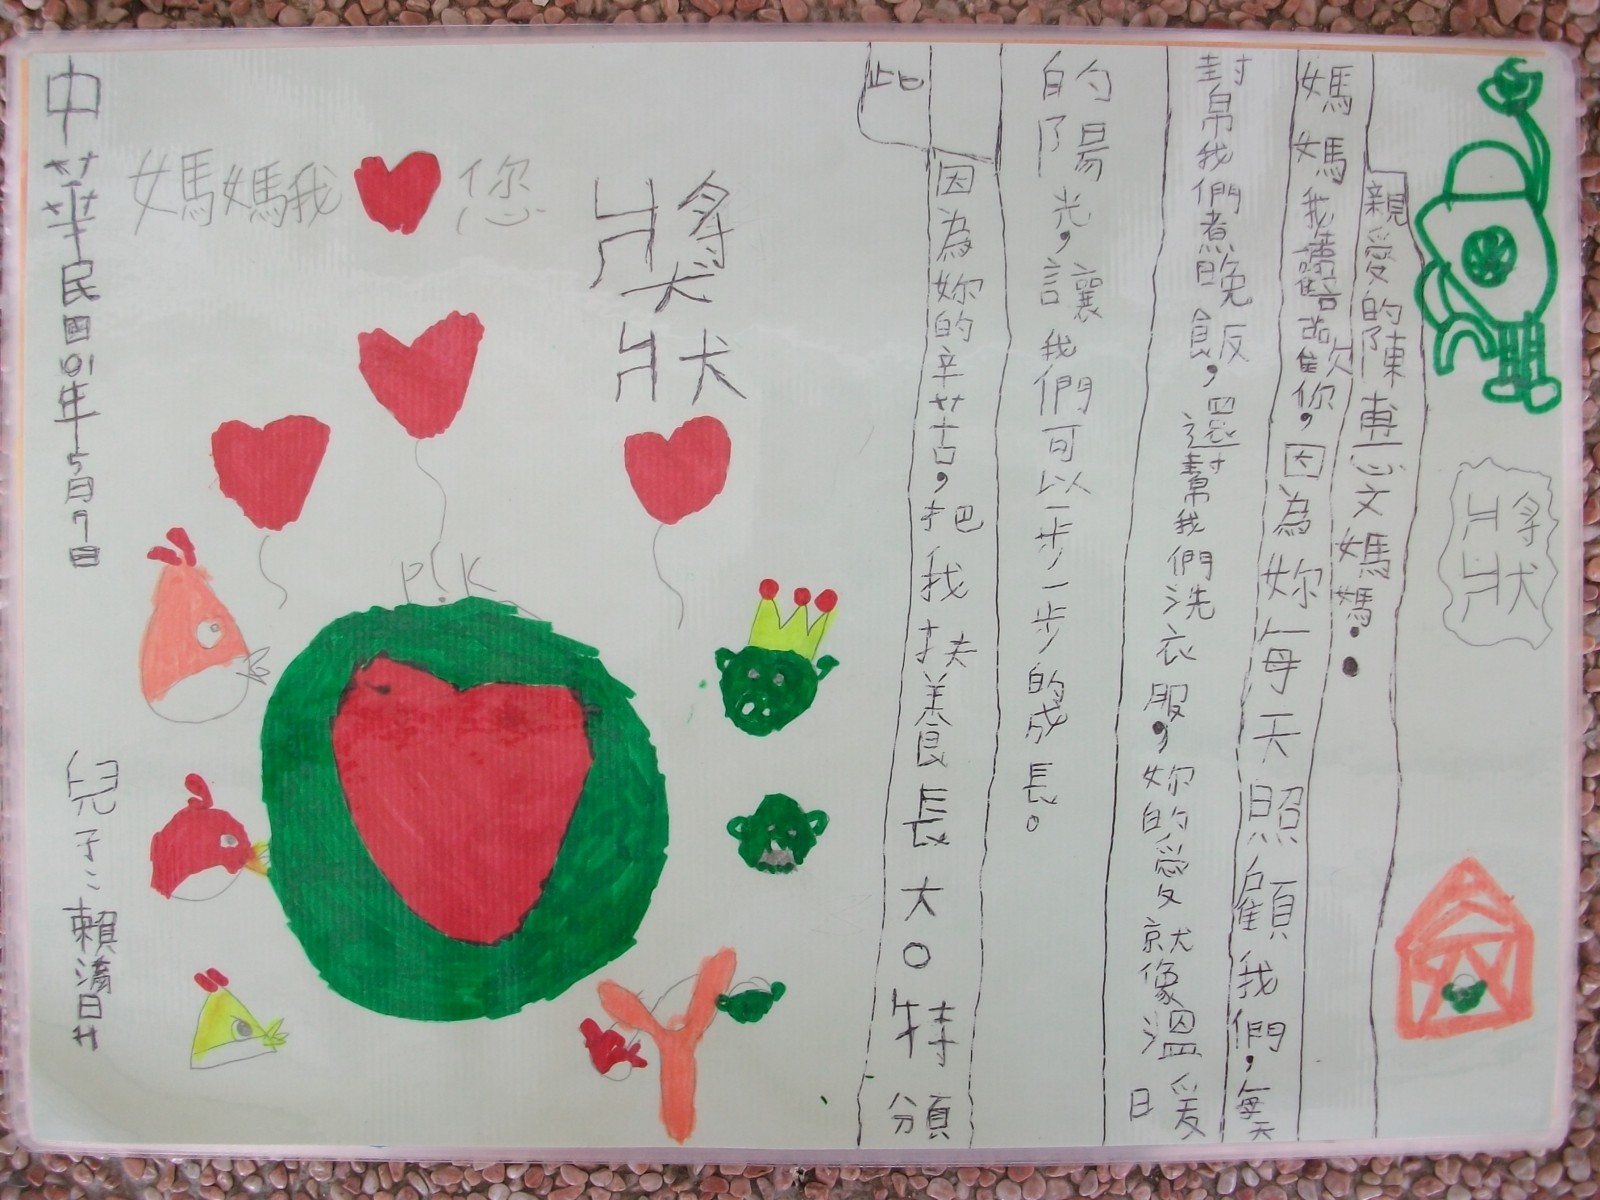 獎狀
親愛的陳惠文媽媽：
媽媽我讚歎你，因為妳每天照顧我們，每天
封帛我們煮晚飯，還幫我們洗衣服，妳的愛就像溫暖
的陽光，讓我們可以一步一步的成長。
因為妳的辛苦，把我扶養長大。特頒
此
獎狀
媽媽我
您
P.K
兒子：賴
中華民國101年5月9日